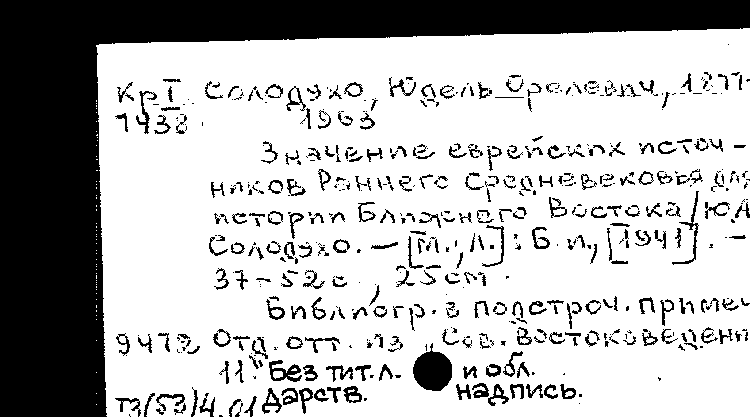 КрI Солодухо, Юдель Орелевич, 1877-
1438 1963
Значение еврейских источ-
ников Раннего средневековья для
истории Ближнего Востока / Ю.А.
Солодухо. — [М., Л.] : Б.и., [1941]. —
37-52с., 25см.
Библиогр. в подстроч. примеч
9472 Отд. отт. из „Сов. востоковедени
11." Без тит.л. и обл.
Т3(53)4.01 Дарств. надпись.